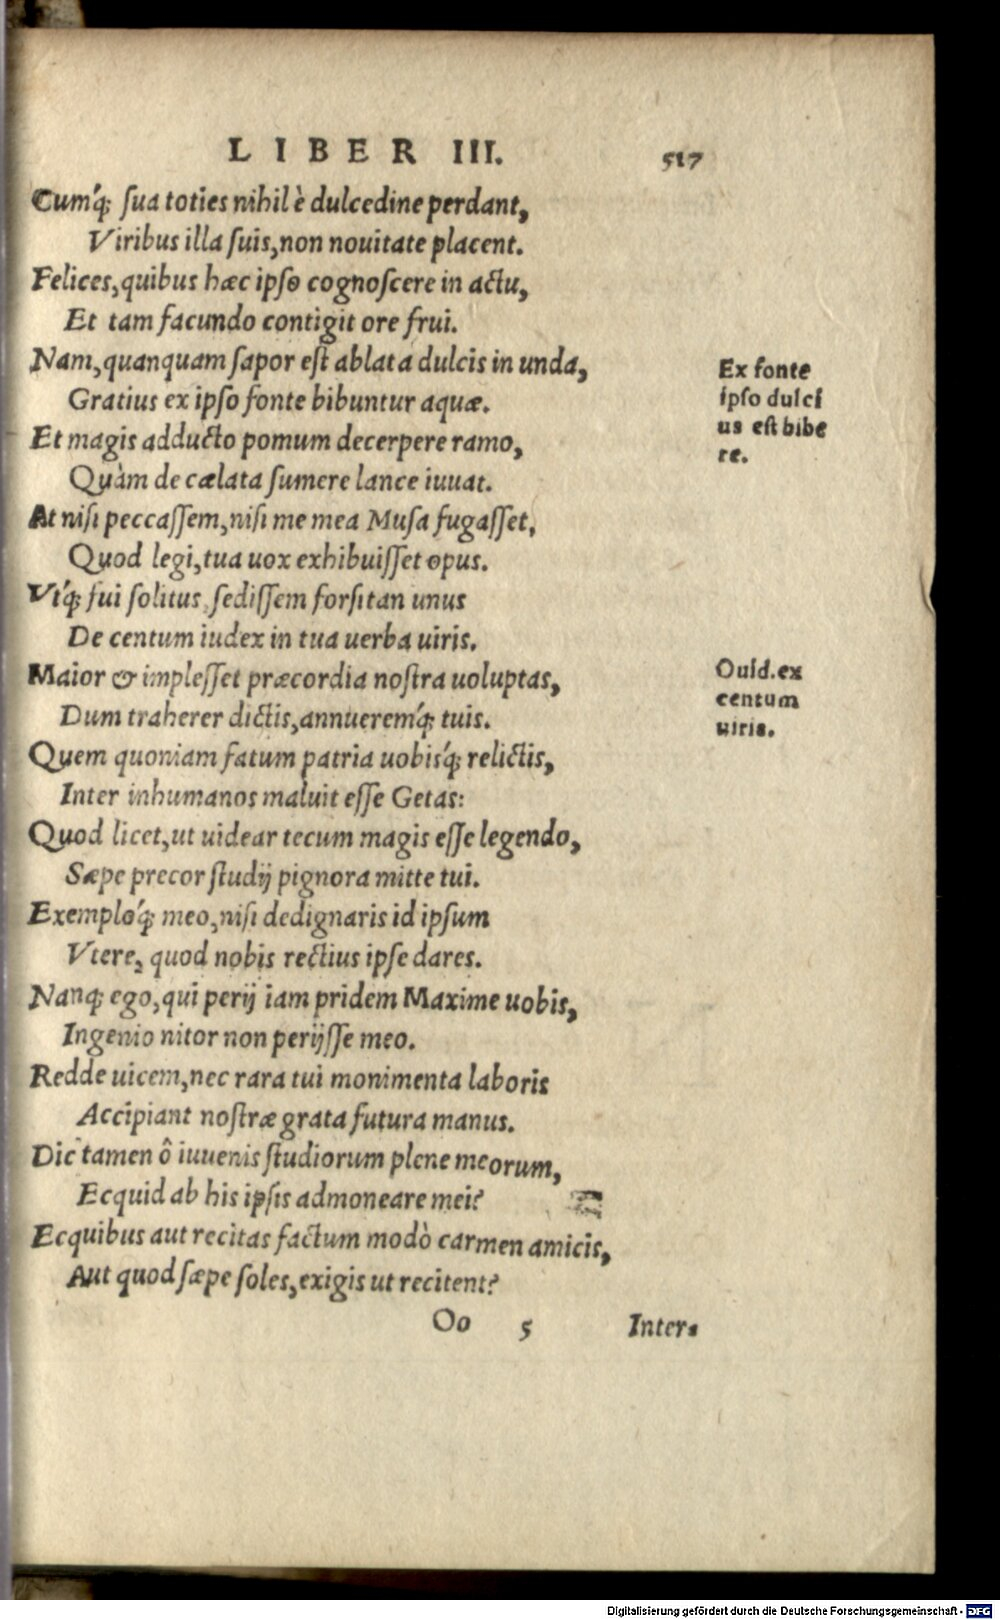 LIBER III. 517
Cumq́; ſua toties nihil è dulcedine perdant,
Viribus illa ſuis, non nouitate placent.
Felices, quibus hæc ipſo cognoſcere in actu,
Et tam facundo contigit ore frui.
Nam, quanquam ſapor eſt ablata dulcis in unda,
Gratius ex ipſo fonte bibuntur aquæ.
Et magis adducto pomum decerpere ramo,
Quàm de cælata ſumere lance iuuat.
At niſi peccaſſem, niſi me mea Muſa fugaſſet,
Quod legi, tua uox exhibuiſſet opus.
Vtq́; fui ſolitus, ſediſſem forſitan unus
De centum iudex in tua uerba uiris.
Maior & impleſſet præcordia noſtra uoluptas,
Dum traherer dictis, annueremq́; tuis.
Quem quoniam fatum patria uobisq́; relictis,
Inter inhumanos maluit eſſe Getas:
Quod licet, ut uidear tecum magis eſſe legendo,
Sæpe precor ſtudij pignora mitte tui.
Exemploq́; meo, niſi dedignaris id ipſum
Vtere, quod nobis rectius ipſe dares.
Nanq; ego, qui perij iam pridem Maxime uobis,
Ingenio nitor non perijſſe meo.
Redde uicem, nec rara tui monimenta laboris
Accipiant noſtræ grata futura manus.
Dic tamen ô iuuenis ſtudiorum plene meorum,
Ecquid ab his ipſis admoneare mei?
Ecquibus aut recitas factum modò carmen amicis,
Aut quod ſæpe ſoles, exigis ut recitent?
Oo 5 Inter-
Ex fonte
ipſo dulci
us eſt bibe
re.
Ouid. ex
centum
uiris.
Digitalisierung gefördert durch die Deutsche Forschungsgemeinschaft - DFG